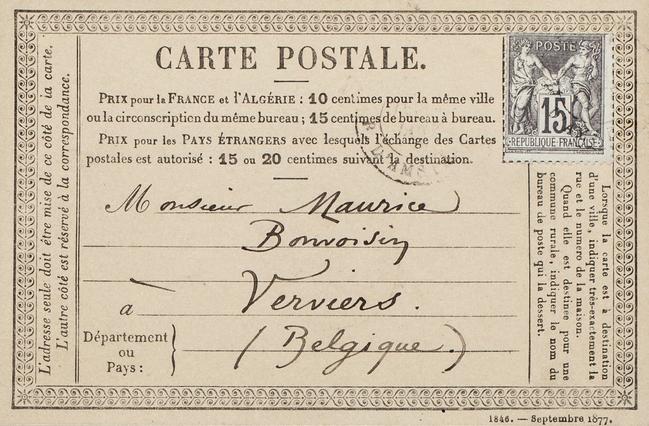 CARTE POSTALE.
PRIX pour la FRANCE et l'ALGÉRIE : 10 centimes pour la même ville
ou la circonscription du même bureau ; 15 centimes de bureau à bureau.
PRIX pour les PAYS ÉTRANGERS avec lesquels l'échange des Cartes
postales est autorisé : 15 ou 20 centimes suivant la destination.
Monsieur Maurice
Bonvoisin
à Verviers.
(Belgique.)
Département
ou
Pays :
L'adresse seule doit être mise de ce côté de la carte.
L'autre côté est réservé à la correspondance.
POSTE
15
REPUBLIQUE FRANÇAISE
Lorsque la carte est à destination
d'une ville, indiquer très-exactement la
rue et le numero de la maison.
Quand elle est destinée pour une
commune rurale, indiquer le nom du
bureau de poste qui la dessert.
1846. — Septembre 1877.